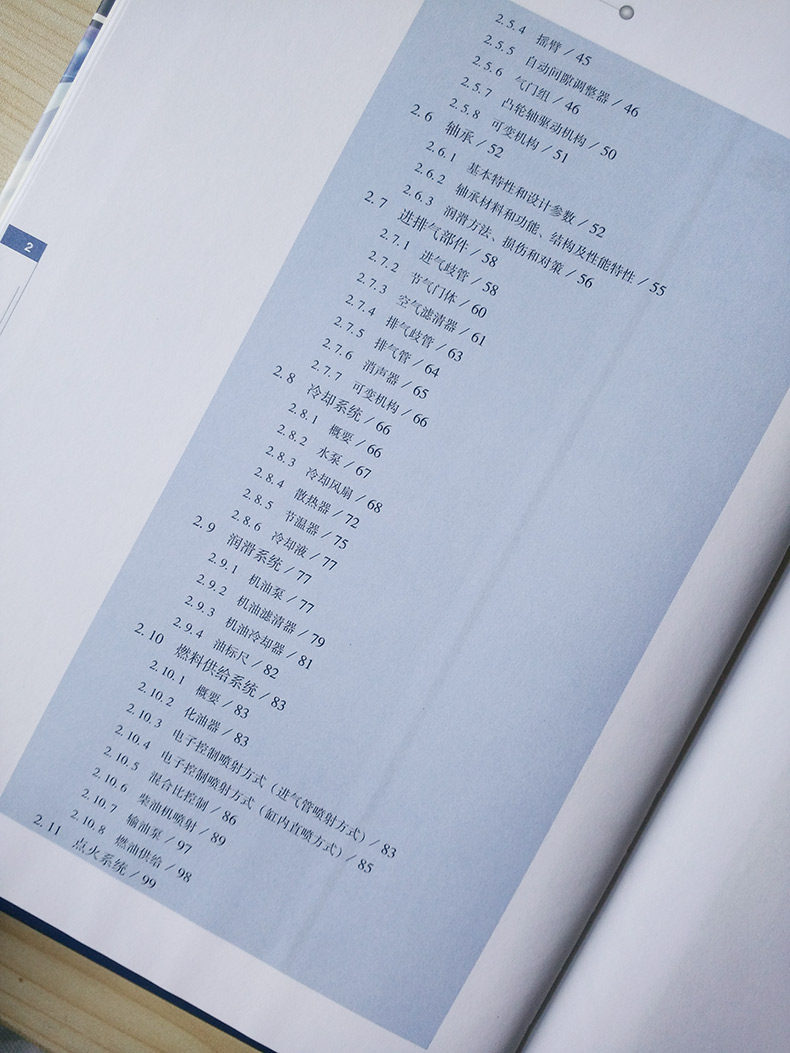 2.5.4 摇臂 / 45
2.5.5 自动间隙调整器 / 46
2.5.6 气门组 / 46
2.5.7 凸轮轴驱动机构 / 50
2.5.8 可变机构 / 51
2.6 轴承 / 52
2.6.1 基本特性和设计参数 / 52
2.6.2 轴承材料和功能、结构及性能特性 / 55
2.6.3 润滑方法、损伤和对策 / 56
2.7 进排气部件 / 58
2.7.1 进气歧管 / 58
2.7.2 节气门体 / 60
2.7.3 空气滤清器 / 61
2.7.4 排气歧管 / 63
2.7.5 排气管 / 64
2.7.6 消声器 / 65
2.7.7 可变机构 / 66
2.8 冷却系统 / 66
2.8.1 概要 / 66
2.8.2 水泵 / 67
2.8.3 冷却风扇 / 68
2.8.4 散热器 / 72
2.8.5 节温器 / 75
2.8.6 冷却液 / 77
2.9 润滑系统 / 77
2.9.1 机油泵 / 77
2.9.2 机油滤清器 / 79
2.9.3 机油冷却器 / 81
2.9.4 油标尺 / 82
2.10 燃料供给系统 / 83
2.10.1 概要 / 83
2.10.2 化油器 / 83
2.10.3 电子控制喷射方式（进气管喷射方式）/ 83
2.10.4 电子控制喷射方式（缸内直喷方式）/ 85
2.10.5 混合比控制 / 86
2.10.6 柴油机喷射 / 89
2.10.7 输油泵 / 97
2.10.8 燃油供给 / 98
2.11 点火系统 / 99
2